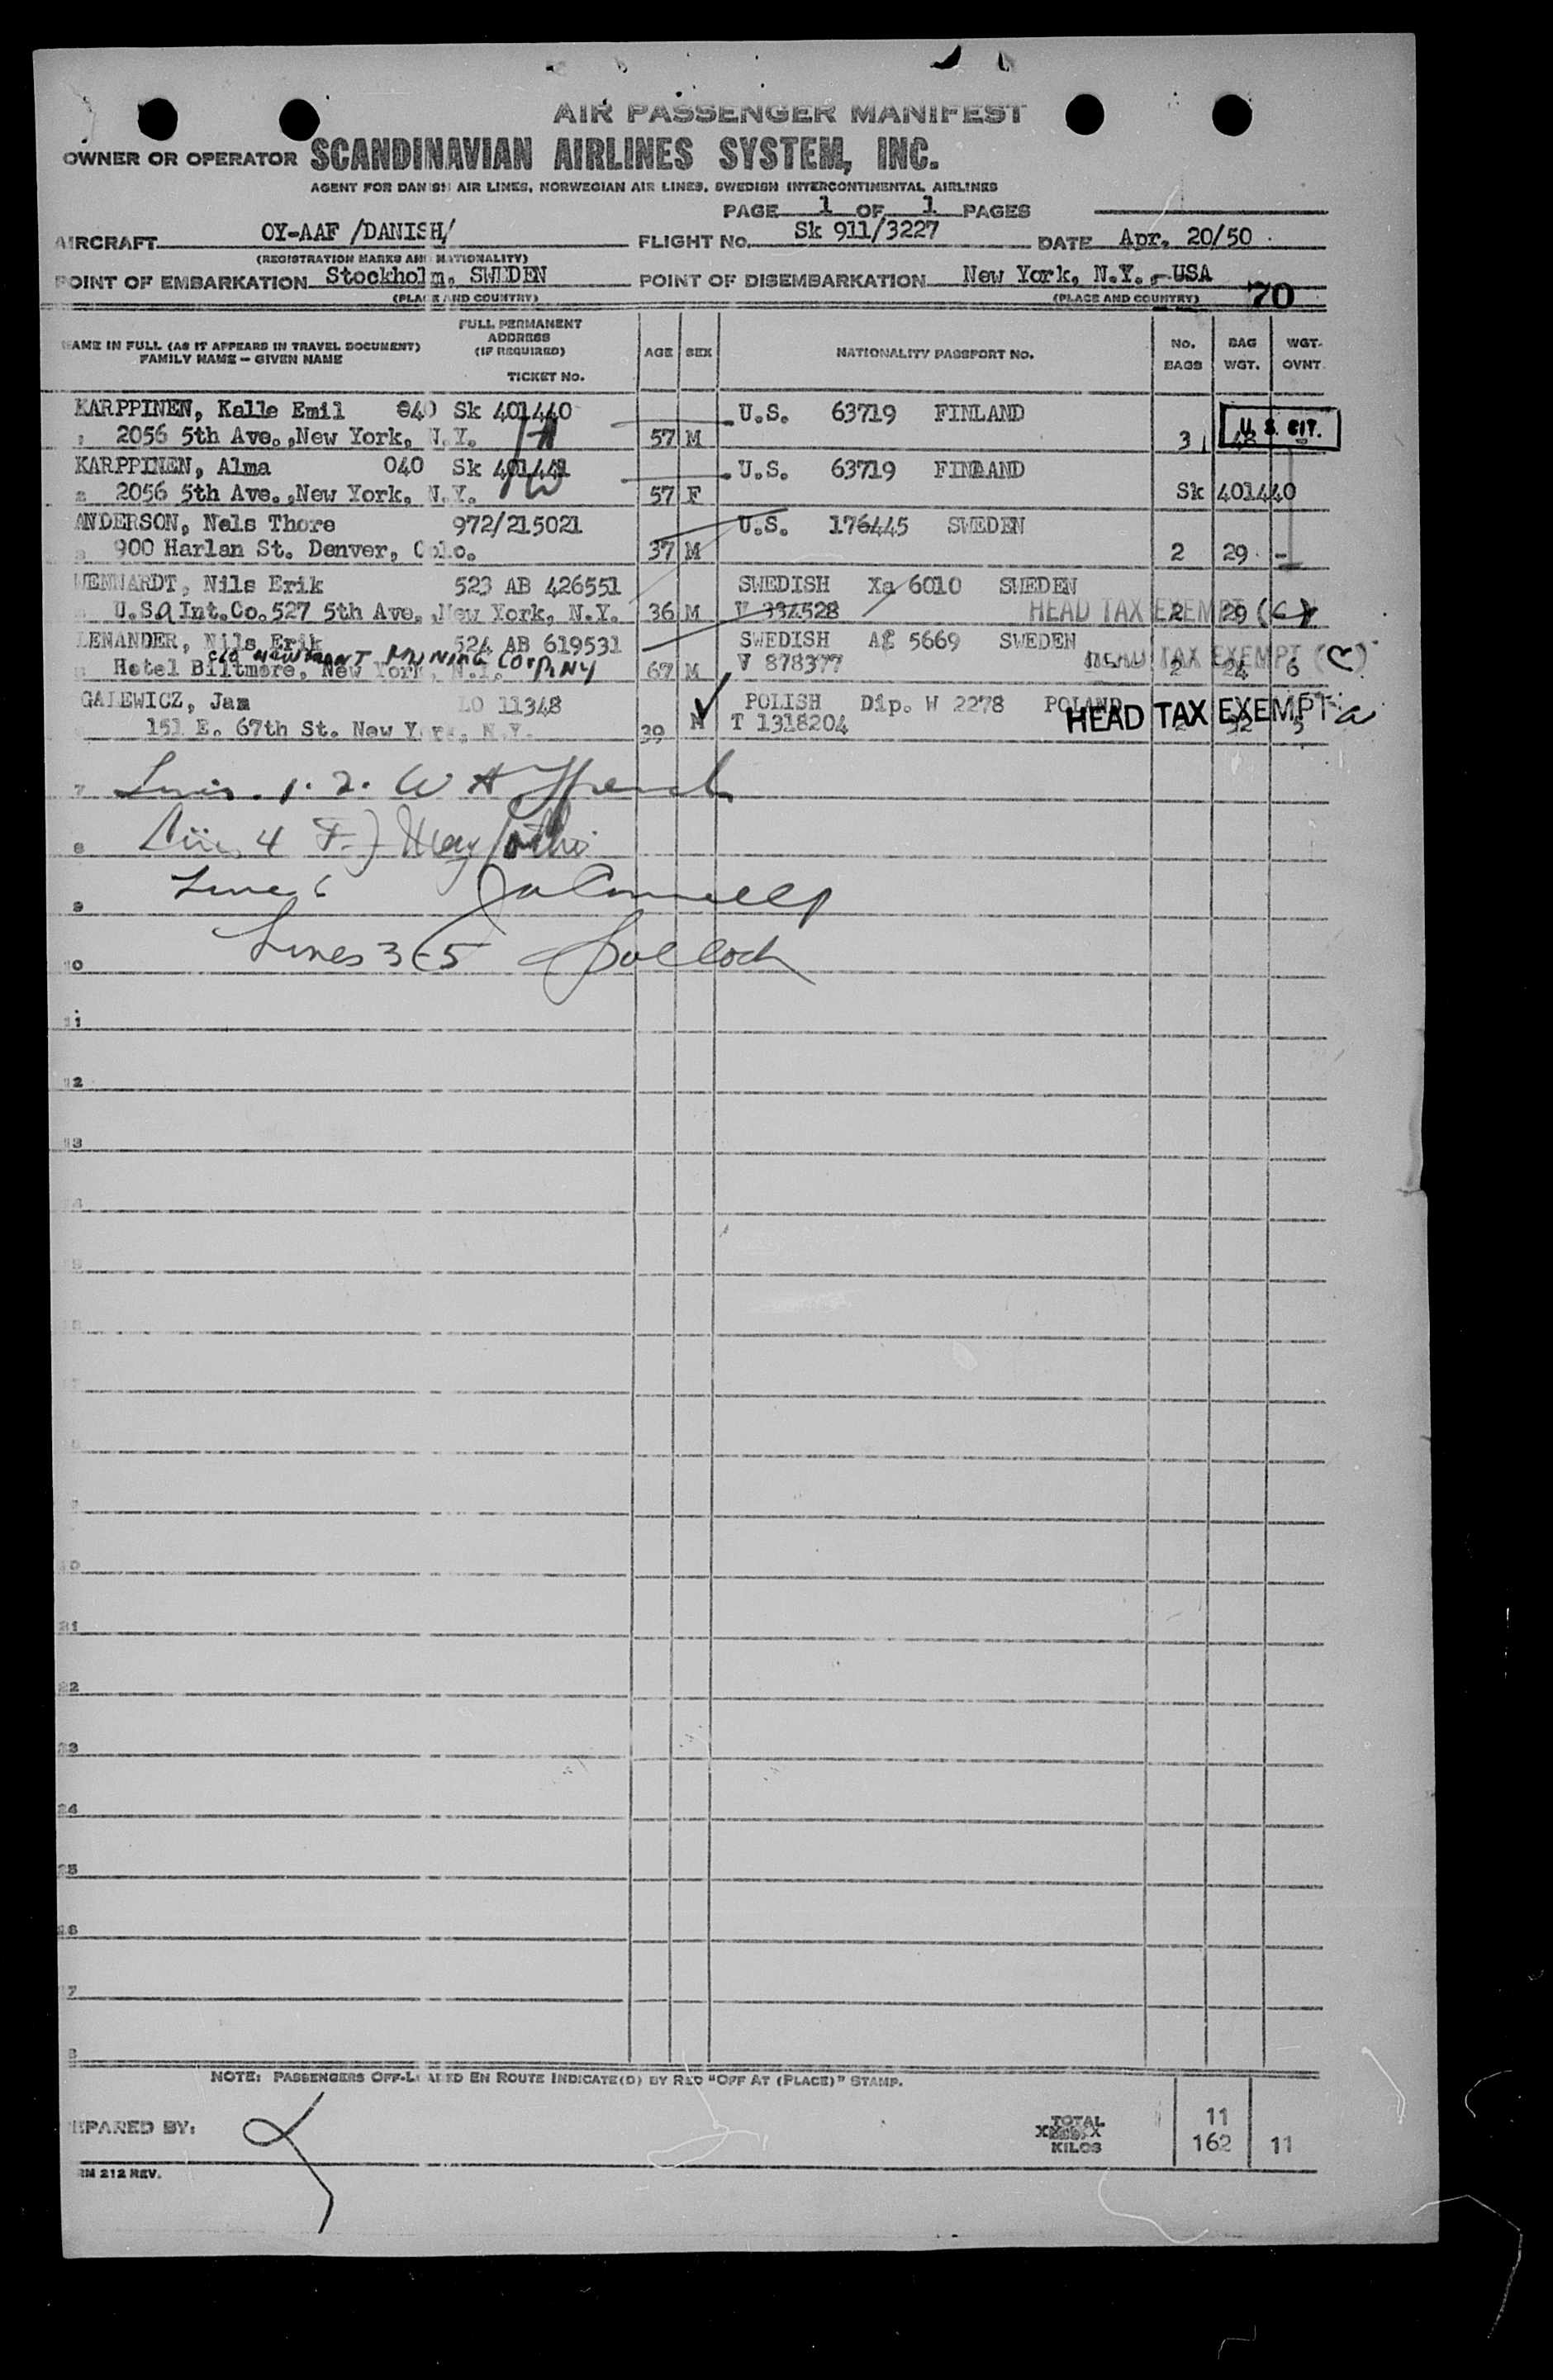 AIR PASSENGER MANIFEST
OWNER OR OPERATOR SCANDINAVIAN AIRLINES SYSTEM, INC.
AGENT FOR DANISH AIR LINES, NORWEGIAN AIR LINES, SWEDISH INTERCONTINENTAL AIRLINES
PAGE 1 OF 1 PAGES
AIRCRAFT OY-AAF /DANISH/ FLIGHT NO. Sk 911/3227 DATE Apr. 20/50
(REGISTRATION MARKS AND NATIONALITY)
POINT OF EMBARKATION Stockholm, SWEDEN POINT OF DISEMBARKATION New York, N.Y., USA
(PLACE AND COUNTRY) (PLACE AND COUNTRY) 70
NAME IN FULL (AS IT APPEARS IN TRAVEL DOCUMENT) FAMILY NAME — GIVEN NAME FULL PERMANENT ADDRESS (IF REQUIRED) TICKET NO. AGE SEX NATIONALITY PASSPORT NO. NO. BAGS BAG WGT. WGT. OVNT
KARPPINEN, Kalle Emil 040 Sk 401440 U.S. 63719 FINLAND U.S. CIT.
2056 5th Ave.,New York, N.Y. 57 M 3 48
KARPPINEN, Alma 040 Sk 401441 U.S. 63719 FINLAND
2056 5th Ave.,New York, N.Y. 57 F Sk 401440
ANDERSON, Nels Thore 972/215021 U.S. 176445 SWEDEN
900 Harlan St. Denver, Colo. 37 M 2 29 -
WENNARDT, Nils Erik 523 AB 426551 SWEDISH Xa 6010 SWEDEN
U.S.A Int.Co.527 5th Ave.,New York, N.Y. 36 M V 334528 HEAD TAX EXEMPT 2 29
LENANDER, Nils Erik 524 AB 619531 SWEDISH 5669 SWEDEN
c/o NEWMONT MINING CORP. NY
Hotel Biltmore, New York, N.Y. 67 M V 878377 HEAD TAX EXEMPT 2 24 6
GALEWICZ, Jam LO 11348 POLISH Dip. W 2278 POLAND
151 E. 67th St. New York, N.Y. 39 M T 1318204 HEAD TAX EXEMPT 2 32 5
7 1. 2. W A French
8 4
9 Line 6
10 Lines 3-5
11
12
13
14
15
16
17
18
19
20
21
22
23
24
25
26
27
28
NOTE: PASSENGERS OFF-LOADED EN ROUTE INDICATE(D) BY RED "OFF AT (PLACE)" STAMP.
PREPARED BY: TOTAL KILOS 11 162 11
RM 212 REV.